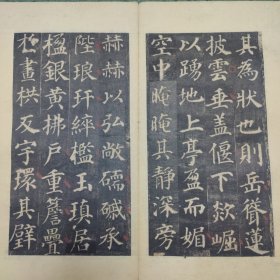 其為狀也則岳聳蓮
披雲垂盖偃下欻崛
以踴地上亭盈而媚
空中晻晻其静深旁
赫赫以弘敞礝磩承
陛琅玕綷檻玉瑱居
楹銀黃拂戶重簷疊
於畫栱反宇環其壁